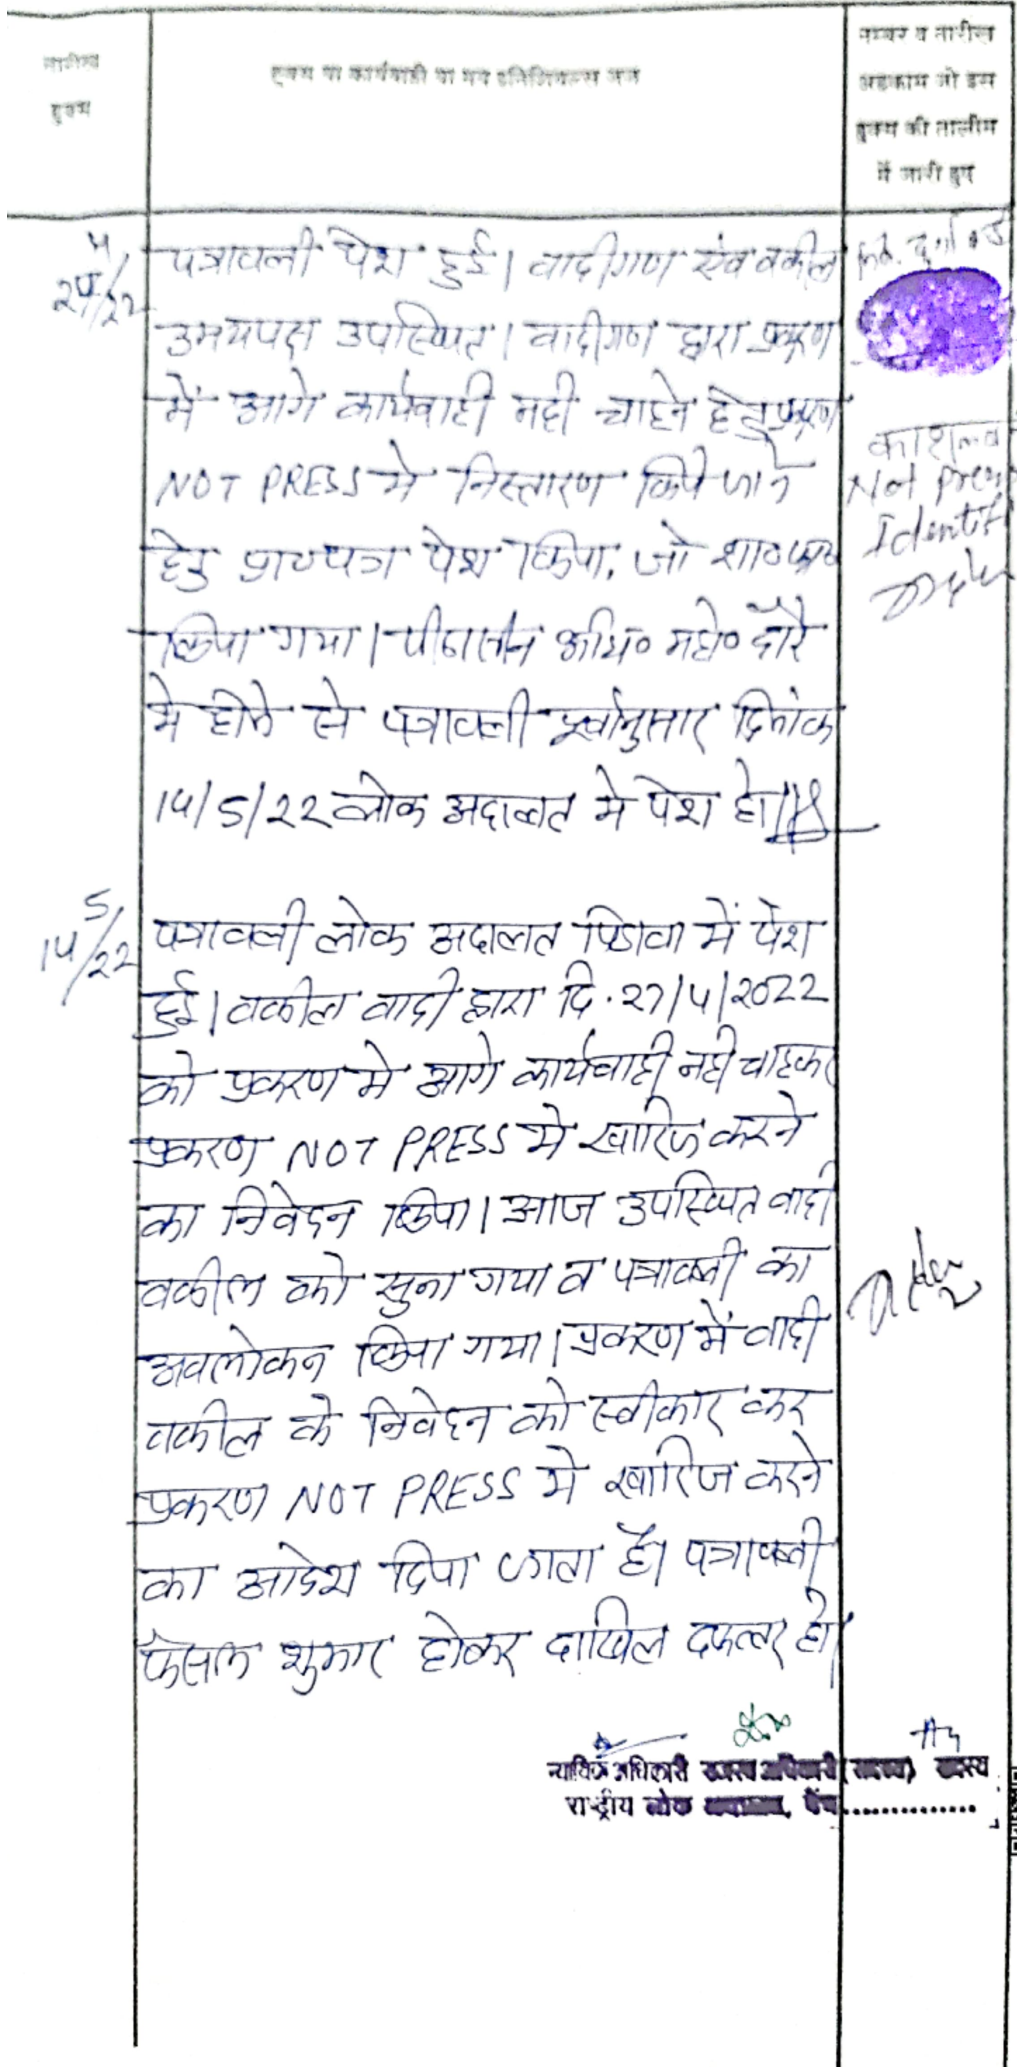 तारीख
हुक्म
हुक्म या कार्यवाही या मय इनिशियल्स जज
नम्बर व तारीख
अहकाम जो इस
हुक्म की तालीम
में जारी हुए
पत्रावली पेश हुई। वादीगण एंव वकील
उभयपक्ष उपस्थित। वादीगण द्वारा प्रकरण
में आगे कार्यवाही नही चाहने हेतु प्रकरण
NOT PRESS मे निस्तारण किये जाने
हेतु प्रा०पत्र पेश किया, जो शा०
किया गया। पीठासीन अधि० महो० दौरे
मे होने से पत्रावली पूर्वानुसार दिनांक
14/5/22 लोक अदालत मे पेश हो।
Not press
Identif
14/5/22
पत्रावली लोक अदालत पिडावा में पेश
हुई। वकील वादी द्वारा दि. 27/4/2022
को प्रकरण मे आगे कार्यवाही नही चाहकर
प्रकरण NOT PRESS मे खारिज करने
का निवेदन किया। आज उपस्थित वादी
वकील को सुना गया व पत्रावली का
अवलोकन किया गया। प्रकरण में वादी
वकील के निवेदन को स्वीकार कर
प्रकरण NOT PRESS मे खारिज करने
का आदेश दिया जाता है। पत्रावली
फैसल शुमार होकर दाखिल दफ्तर हो।
न्यायिक अधिकारी राजस्व अधिकारी (सदस्य) सदस्य
राष्ट्रीय लोक अदालत, बेंच..............